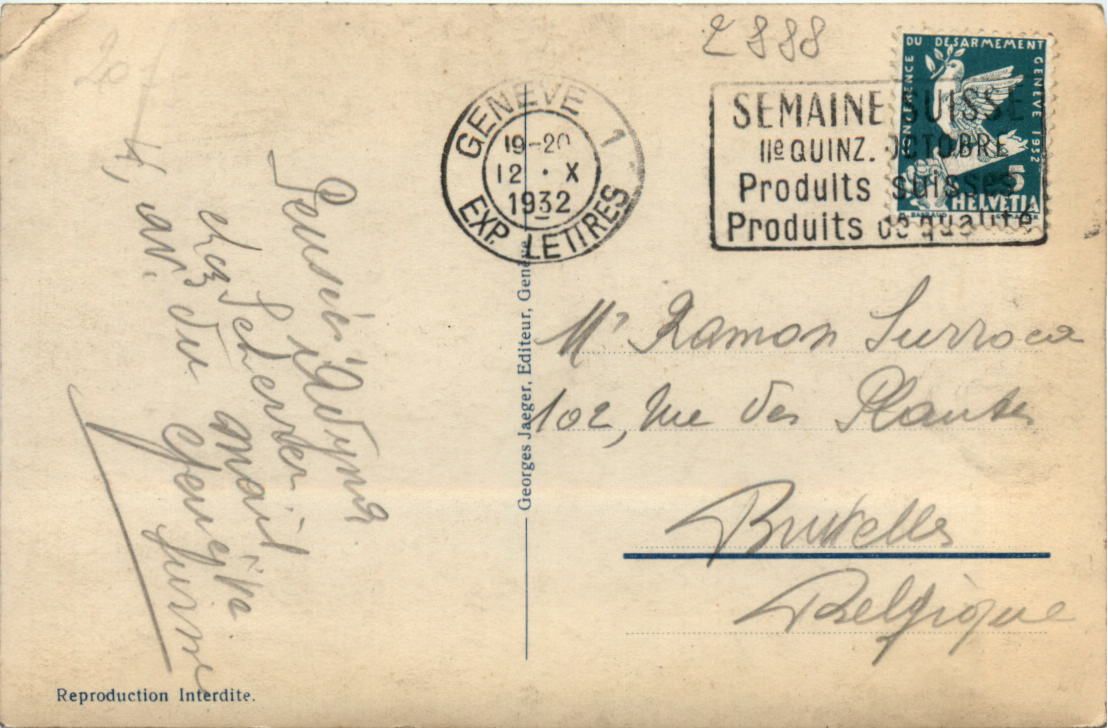 20 f
2888
CONFERENCE DU DESARMEMENT GENEVE 1932
5
HELVETIA
GENEVE 1
19-20
12 · X
1932
EXP. LETTRES
SEMAINE SUISSE
IIe QUINZ. OCTOBRE
Produits suisses
Produits de qualité
Pension
chez Scherrer
4, av. du mail
Genève
Suisse
Georges Jaeger, Editeur, Genève
Mr Ramon Surroca
102, rue des Plantes
Bruxelles
Belgique
Reproduction Interdite.